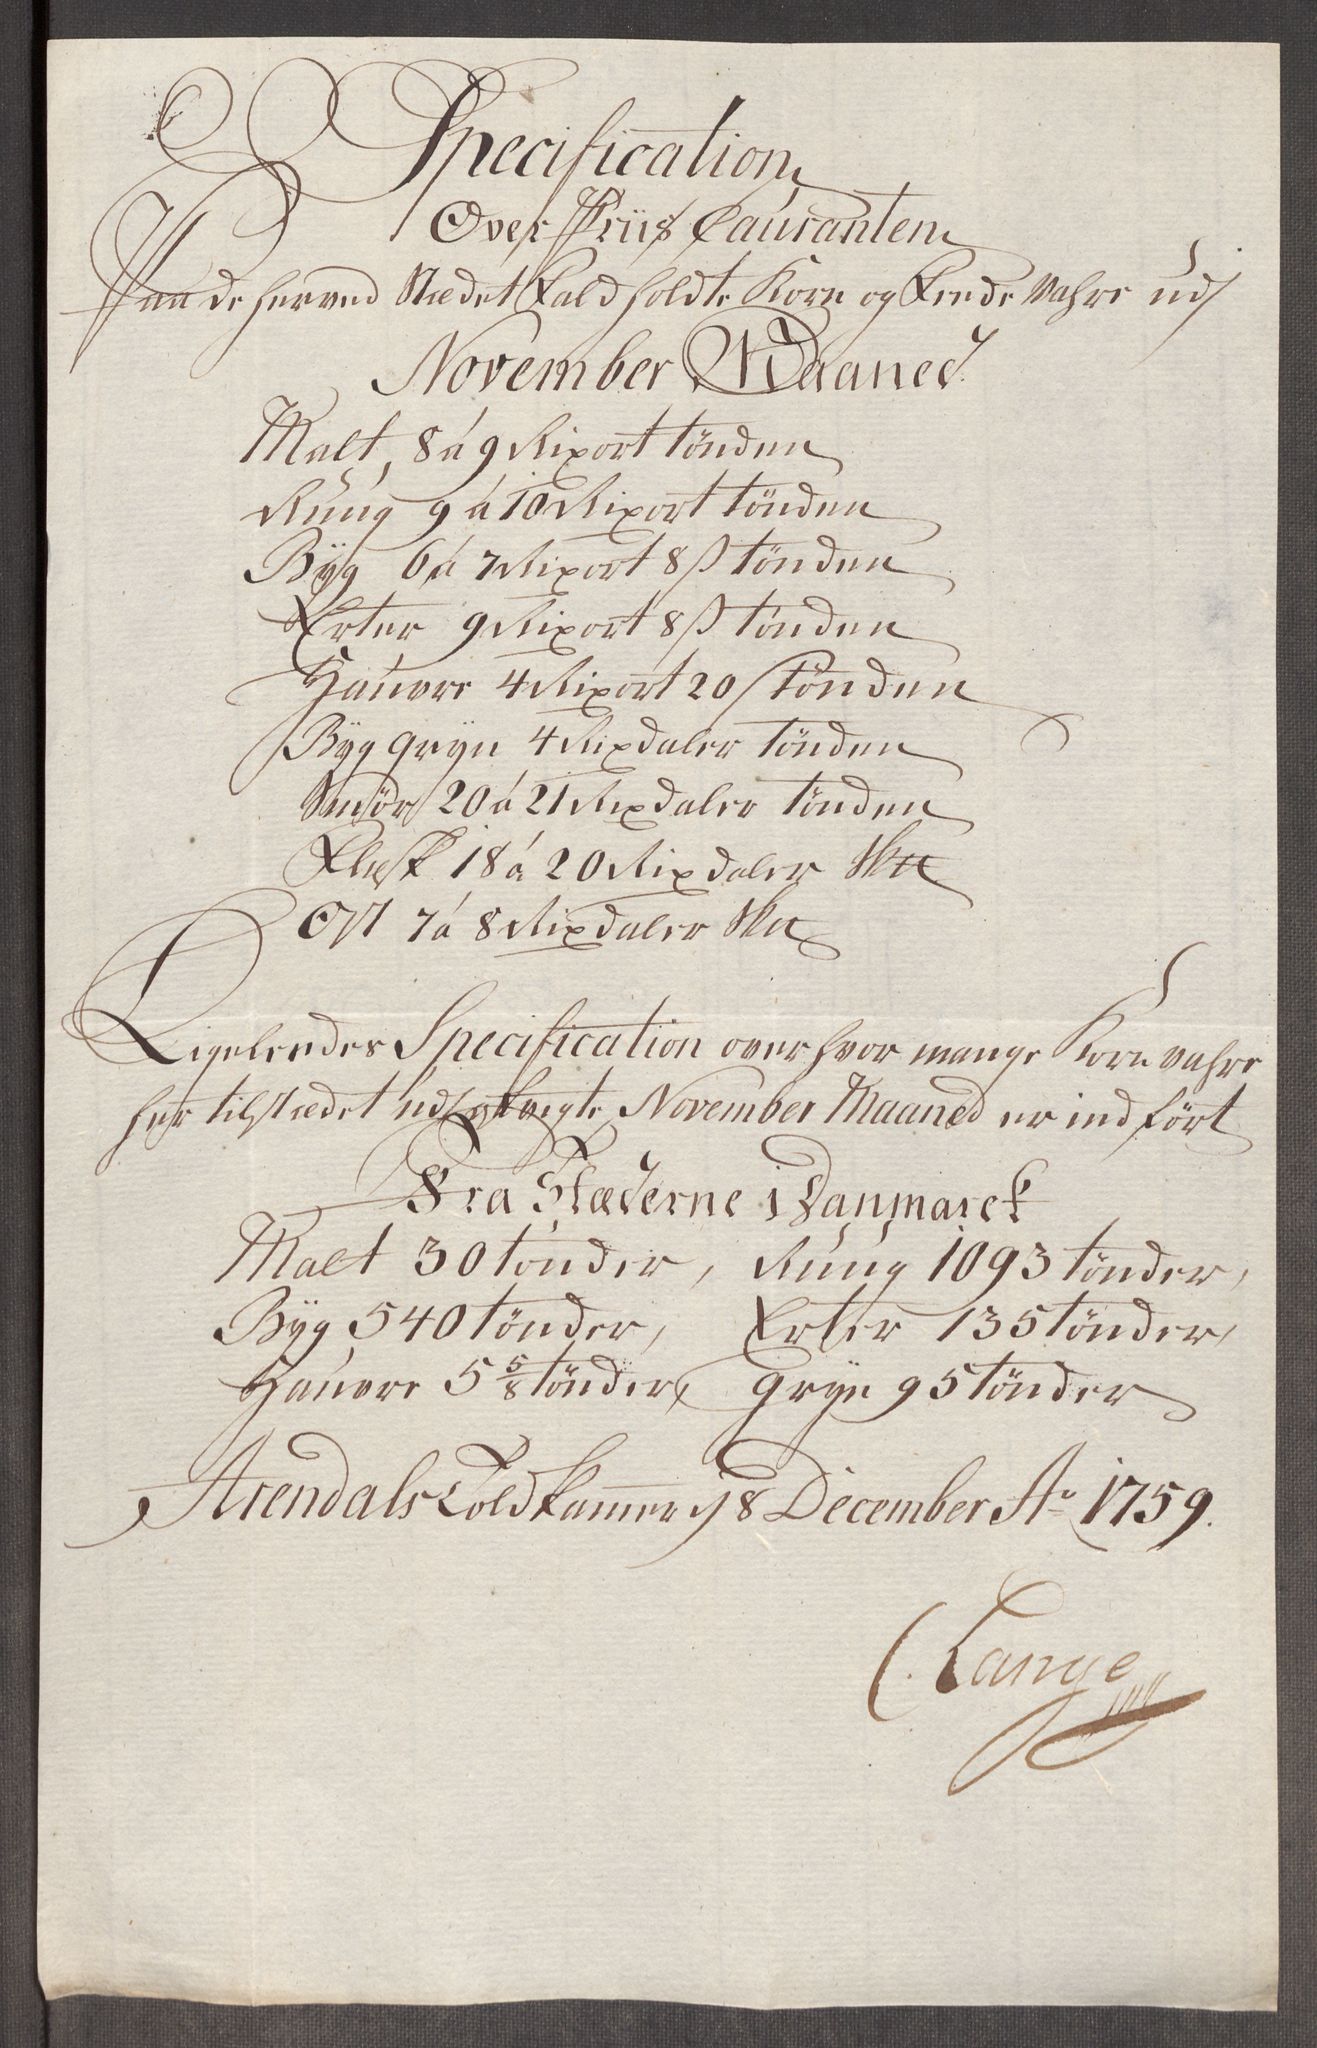 Specification
Over Priis Couranten
Paa de herved Stædet Fald holdte Korn og Feede Vahre udj
November Maaned
Malt, 8 á 9 Rixort tönden
Rúúg 9 á 10 Rixort tönden
Byg 6 á 7 Rixort 8 ß tönden
Erter 9 Rixort 8 ß tönden
Haúvre 4 Rixort 20 ß tönden
Byg gryn 4 Rixdaler tönden
Smör 20 á 21 Rixdaler tönden
Flesk 18 á 20 Rixdaler Skll
Ost 7 á 8 Rixdaler Skll
Ligeleedes Specification over hvor mange Korn vahre
her til stædet udj November Maaned er ind fört
Fra Stæderne i Danmarck
Malt 30 tönder, Rúúg 1093 tönder,
Byg 540 tönder, Erter 135 tönder,
Haúvre 5 5/8 tönder, gryn 95 tönder
Arendals Told Kammer d 8 December Ao 1759.
C. Lange